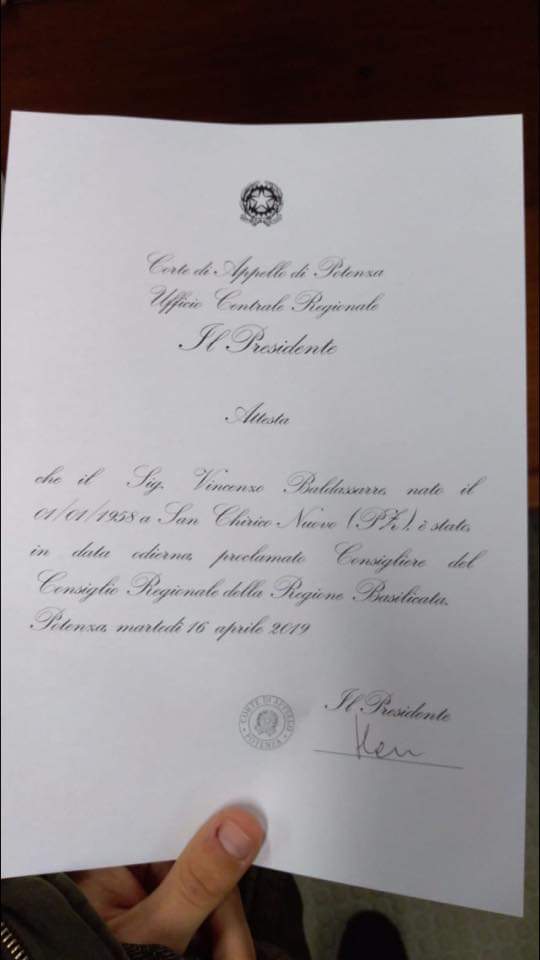 Corte di Appello di Potenza
Ufficio Centrale Regionale
Il Presidente
Attesta
che il Sig. Vincenzo Baldassarre, nato il
01/01/1958 a San Chirico Nuovo (PZ), è stato,
in data odierna, proclamato Consigliere del
Consiglio Regionale della Regione Basilicata.
Potenza, martedì 16 aprile 2019
Il Presidente
CORTE DI APPELLO
POTENZA